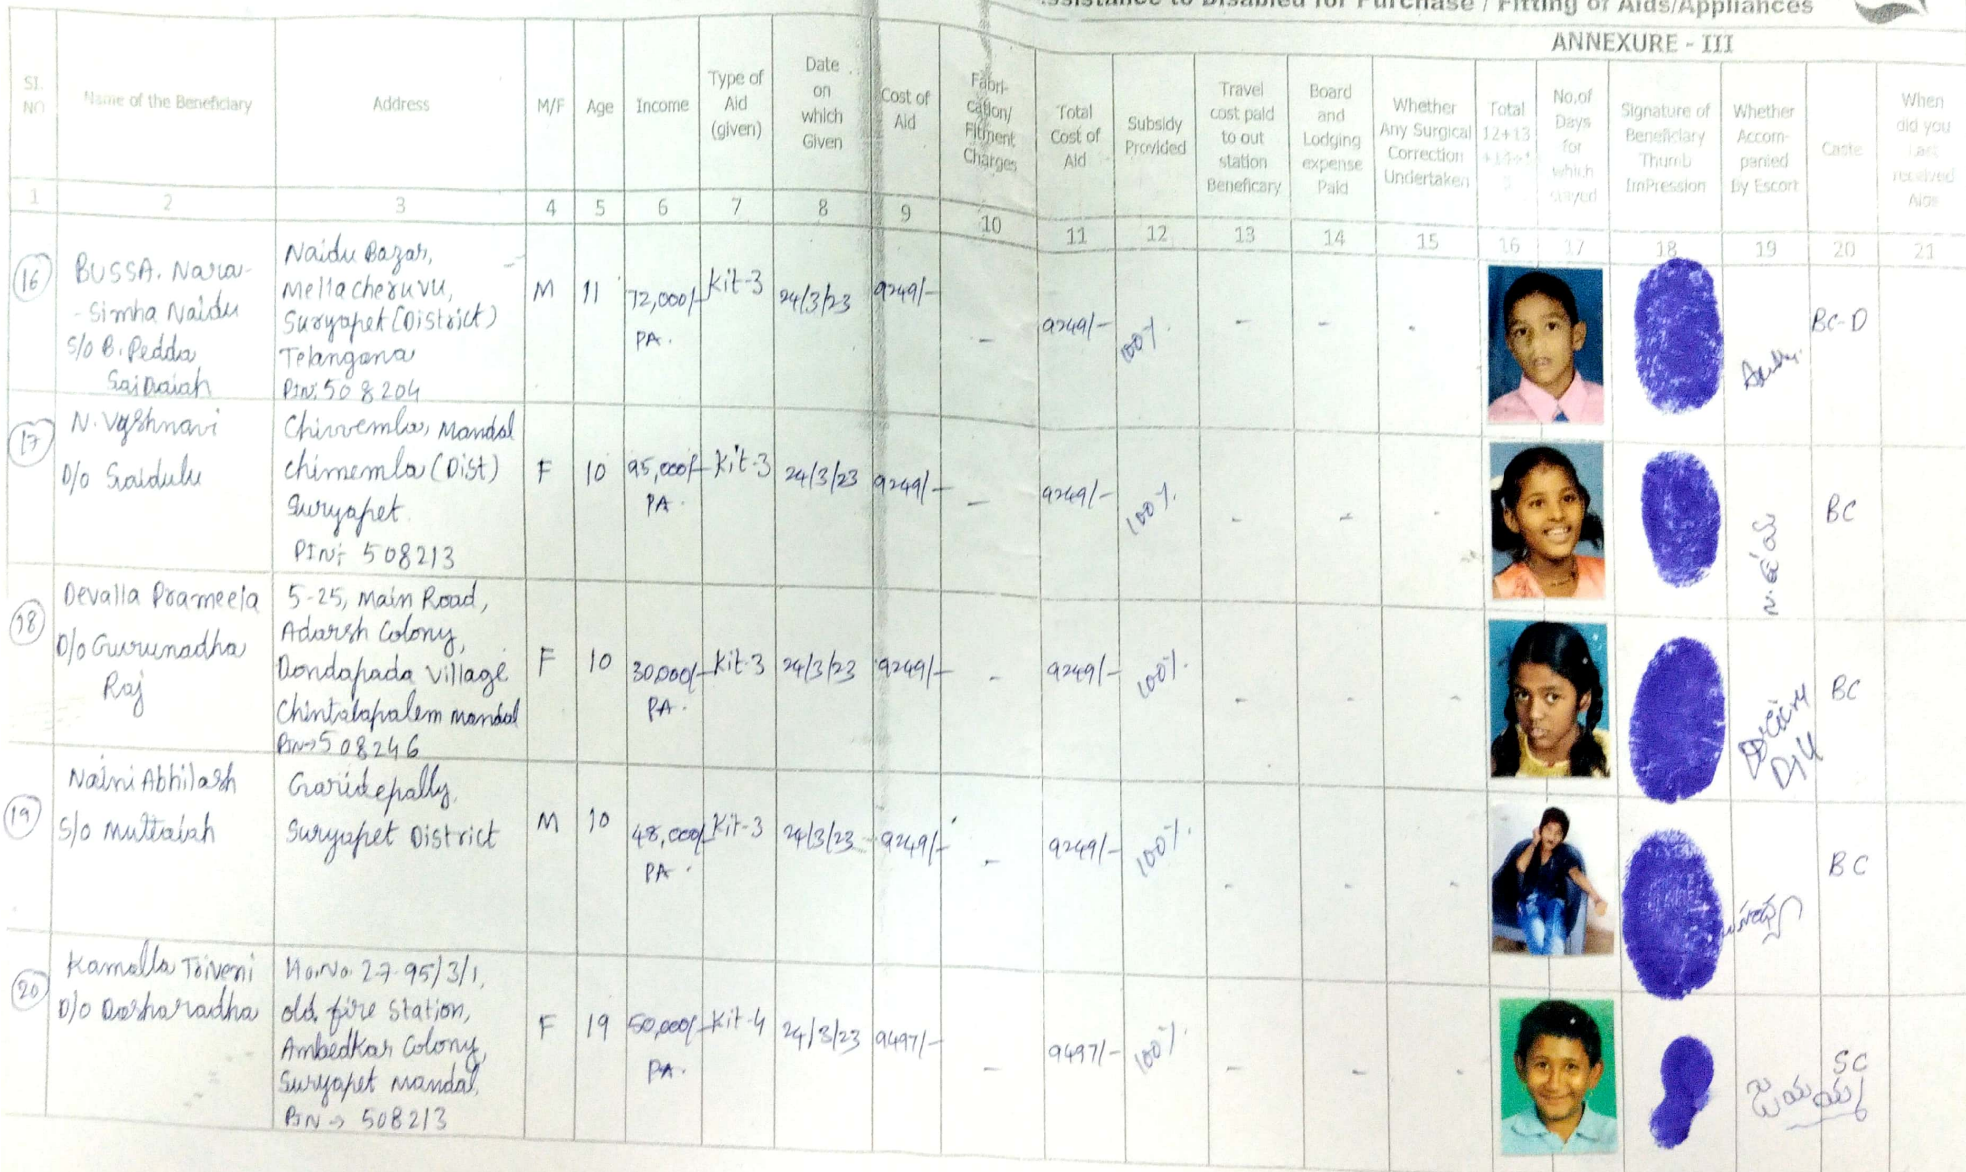 Assistance to Disabled for Purchase / Fitting of Aids/Appliances
ANNEXURE - III
SI. NO
Name of the Beneficiary
Address
M/F
Age
Income
Type of Aid (given)
Date on which Given
Cost of Aid
Fabri-cation/ Fitment Charges
Total Cost of Aid
Subsidy Provided
Travel cost paid to out station Beneficary
Board and Lodging expense Paid
Whether Any Surgical Correction Undertaken
Total 12+13
No.of Days for which stayed
Signature of Beneficiary Thumb ImPression
Whether Accom-panied By Escort
Caste
When did you Last received Aids
1 2 3 4 5 6 7 8 9 10 11 12 13 14 15 16 17 18 19 20 21
16
BUSSA. Nara-
- Simha Naidu
S/o B. Pedda
Saidaiah
Naidu Bazar,
Mellacheruvu,
Suryapet (District)
Telangana
Pin: 508204
M 11 72,000/- PA. Kit-3 24/3/23 9249/- - 9249/- 100% - - - BC-D
17
N. Vyshnavi
D/o Saidulu
Chivvemla, Mandal
chimemla (Dist)
Suryapet.
PIN: 508213
F 10 95,000/- PA. Kit-3 24/3/23 9249/- - 9249/- 100% - - - BC
18
Devalla Prameela
D/o Gurunadha
Raj
5-25, Main Road,
Adarsh Colony,
Dondapada Village
Chintalapalem Mandal
Pin→508246
F 10 30,000/- PA. Kit-3 24/3/23 9249/- - 9249/- 100% - - - BC
19
Naini Abhilash
S/o Muttaiah
Garidepally,
Suryapet District
M 10 48,000/- PA. Kit-3 24/3/23 9249/- - 9249/- 100% - - - BC
20
Kamalla Triveni
D/o Dasharadha
H.No. 2-7-95/3/1,
old fire Station,
Ambedkar Colony,
Suryapet Mandal,
Pin → 508213
F 19 50,000/- PA. Kit-4 24/3/23 9497/- - 9497/- 100% - - - SC